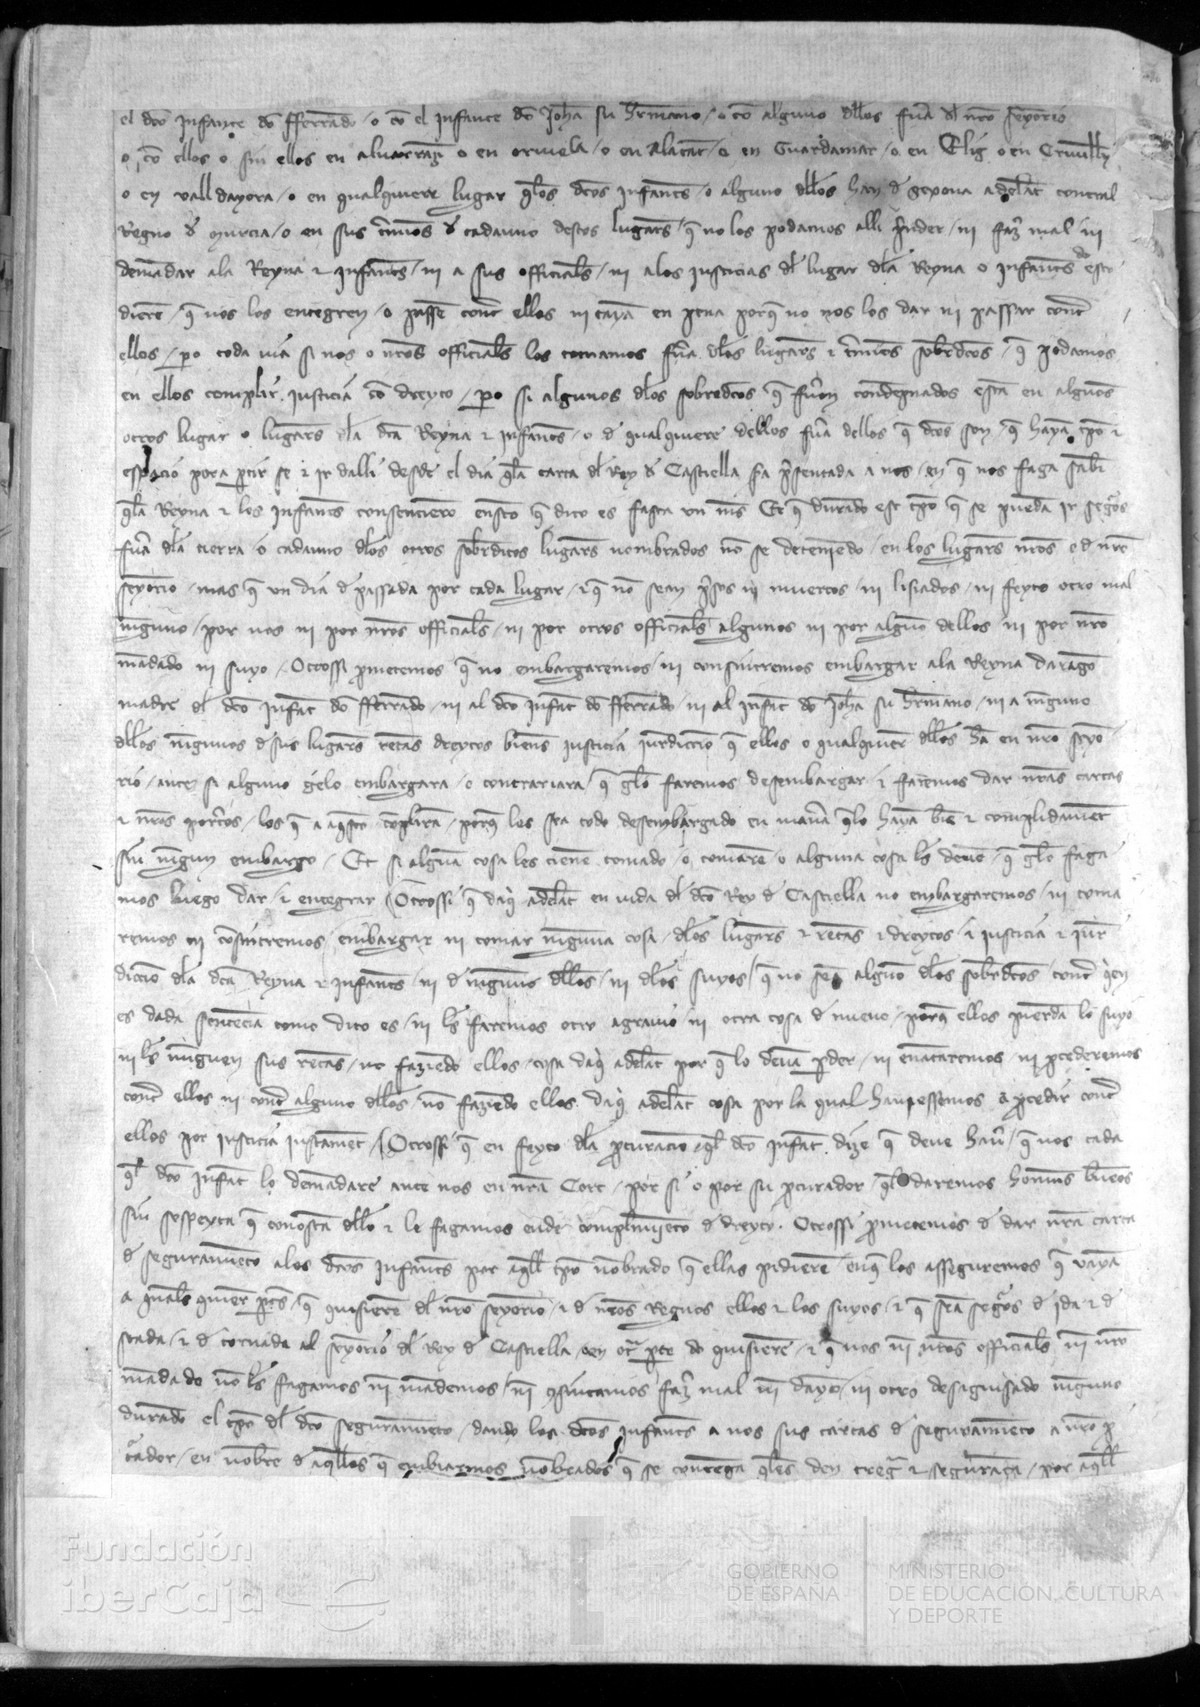 el dco Infante do fferrado / o co el Infante do Joha su hrmano / o co alguno dllos fua dl nro senyorio
o co ellos o sin ellos en alvarrazi o en oriuela / o en alacat / o en Guardamar / o en Elig o en Creuillen
o en vall dayora / o en qualquiere lugar qlos dcos Infants / o alguno dllos han d Gexona adelat contral
Regno d Murcia / o en sus tminos d cadauno destos lugars / q no los podamos alli prnder / ni faz mal ni
demadar ala Reyna & Infants / ni a sus officials / ni alos justicias dl lugar dla Reyna o Infants do esto
diere / q nos los entegren / o passe cont ellos ni caya en pena porq no nos los dar ni passar cont
ellos / po toda via si nos o nros officials los tomamos fua dlos lugars & tminos sobrdcos / q podamos
en ellos complir justicia co dreyto / po si algunos dlos sobredcos q furon condepnados esta en algunos
otros lugar o lugars dla dca Reyna & Infants / o d qualquiere dellos fua dellos q dcos son / q haya tpo &
espacio pora ptir se & ir dalli desde el dia qla carta dl Rey d Castiella sa psentada a nos / en q nos faga sabr
qla Reyna & los Infants consentiero en esto q dito es fasta un mes Et q durado est tpo q se pueda ir segros
fua dla tierra o cadauno dlos otros sobrdicos lugars nombrados no se deteniedo / en los lugars nros o d nro
senyorio / mas q un dia d passada por cada lugar / & q no sean psos ni muertos / ni lisiados / ni feyto otro mal
ninguno / por nos ni por nros officials / ni por otros officials algunos ni por alguno dellos ni por nro
madado ni suyo / Otrossi pmetemos q no embargaremos / ni consintremos embargar ala Reyna darago
madre dl dco Infat do fferrado / ni al dco Infat do fferrado / ni al Infat do Joha su hrmano / ni a ninguno
dllos ningunos d sus lugars retas dreytos biens justicia iurdiccio q ellos o qualquiere dllos ha en nro senyo
rio / ante si alguno gelo embargara / o contrariara / q glo faremos desembargar & faremos dar nras cartas
& nros porteros / los q a aqsto complira / porq les sea todo desembargado en mana qlo haya bie & complidament
sin ningun embargo / Et si alguna cosa les tiene tomado / o tomare / o alguna cosa ls deue / q glo faga
mos luego dar / & entegrar / Otrossi q daqi adelat en vida dl dco Rey d Castiella no embargaremos / ni toma
remos ni cosintremos embargar ni tomar ninguna cosa / dlos lugars & retas & dreytos / & justicia & iur
diccio dla dca Reyna & Infants / ni d ninguno dllos / ni dlos suyos / q no sea alguno dlos sobrdcos / cont qien
es dada sentecia como dito es / ni ls faremos otro agrauio ni otra cosa d nueuo / porq ellos pierda lo suyo
ni ls minguen sus retas / no faziedo ellos / cosa daqi adelat por q lo deua pder / ni enantaremos / ni pcederemos
cont ellos ni cont alguno dllos no faziedo ellos daqi adelat cosa por la qual hauiessemos a pcedir cont
ellos por justicia justamet / Otrossi q en feyto dla pcuracio ql dco Infat dize q deue hau / q nos cada
ql dco Infat lo demadare ante nos en nra Cort / por si o por su pcurador qlo daremos homns buenos
sin sospeyta q conosca dllo & le fagamos ende complimieto d dreyto. Otrossi pmetemos d dar nra carta
d seguramieto alos dcos Infants por aqll tpo nobrado q ellos pidiere / enq los asseguremos q vaya
a quals quier pts / q quisiere dl nro senyorio / & d nros Regnos ellos & los suyos / & q sea segros d ida & d
stada / & d tornada al senyorio dl Rey d Castiella o en otra pte do quisiere / & q nos ni nros officials ni nro
madado no ls fagamos ni mademos / ni cosintamos faz mal ni danyo / ni otro desaguisado ninguno
durado el tpo dl dco seguramieto / dando los dcos Infants a nos sus cartas d seguramieto a nro p
cador / en nobre d aqllos q embiaremos nobrados q se contenga qles den trega & segurança / por aqll
Fundación
iberCaja
GOBIERNO
DE ESPAÑA
MINISTERIO
DE EDUCACIÓN, CULTURA
Y DEPORTE